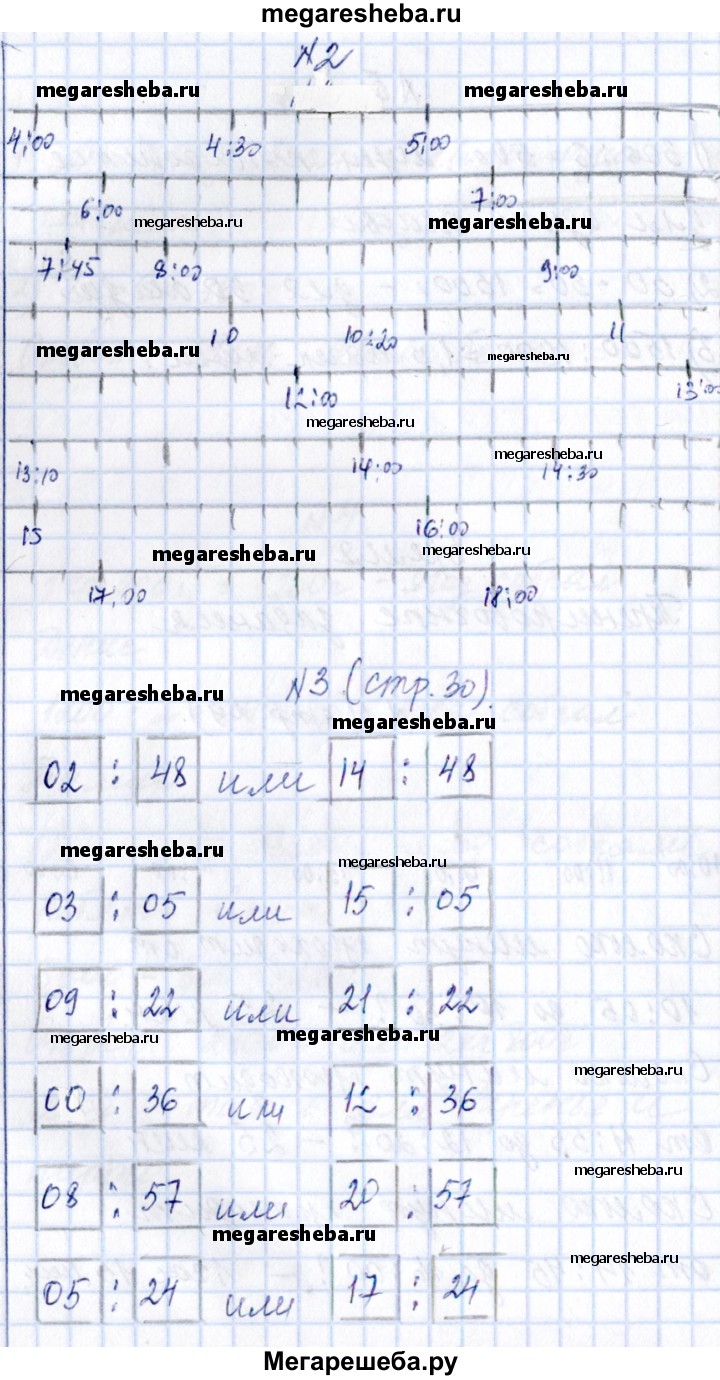 megaresheba.ru
№2
megaresheba.ru megaresheba.ru
4:00 4:30 5:00
6:00 7:00
megaresheba.ru megaresheba.ru
7:45 8:00 9:00
10 10:20 11
megaresheba.ru megaresheba.ru
12:00 13:00
megaresheba.ru
13:10 14:00 14:30
megaresheba.ru
15 16:00
megaresheba.ru megaresheba.ru
17:00 18:00
№3 (стр. 30).
megaresheba.ru
megaresheba.ru
02 : 48 или 14 : 48
megaresheba.ru megaresheba.ru
03 : 05 или 15 : 05
09 : 22 или 21 : 22
megaresheba.ru megaresheba.ru
megaresheba.ru
00 : 36 или 12 : 36
megaresheba.ru
08 : 57 или 20 : 57
megaresheba.ru
megaresheba.ru
05 : 24 или 17 : 24
Мегарешеба.ру